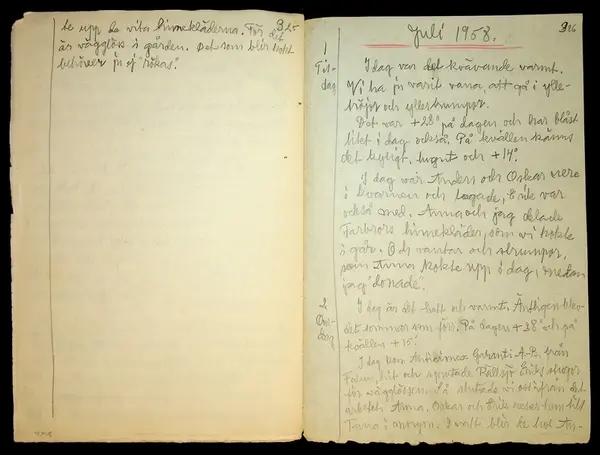 te upp de vita linnekläderna. För det
325
är vägglöss i gården. Det som blir kokt
behöver ju ej "rökas".
326
Juli 1958.
1
Tis-
dag
I dag var det kvävande varmt.
Vi ha ju varit vana, att gå i ylle-
tröjor och yllestrumpor.
Det var +28° på dagen och har blåst
litet i dag också. På kvällen känns
det kyligt, lugnt och +14°.
I dag war Anders och Oskar nere
i kvarnen och lagade, Erik var
också med. Anna och jag
Farbrors linnekläder, som vi kokte
i går. Och vantar och strumpor,
som Anna kokte upp i dag, medan
jag "donade".
2
Ons-
dag
I dag är det hett och varmt. Äntligen blev
det sommar som förr. På dagen +28° och på
kvällen +15°.
I dag kom Anticimex Garanti A-B. från
Falun, hit och Pållsjö Eriks stugor
för vägglössen. Så slutade vi också från det
arbetet. Anna, Oskar och Erik reser hem till
i morgon. I natt blir de hos An-